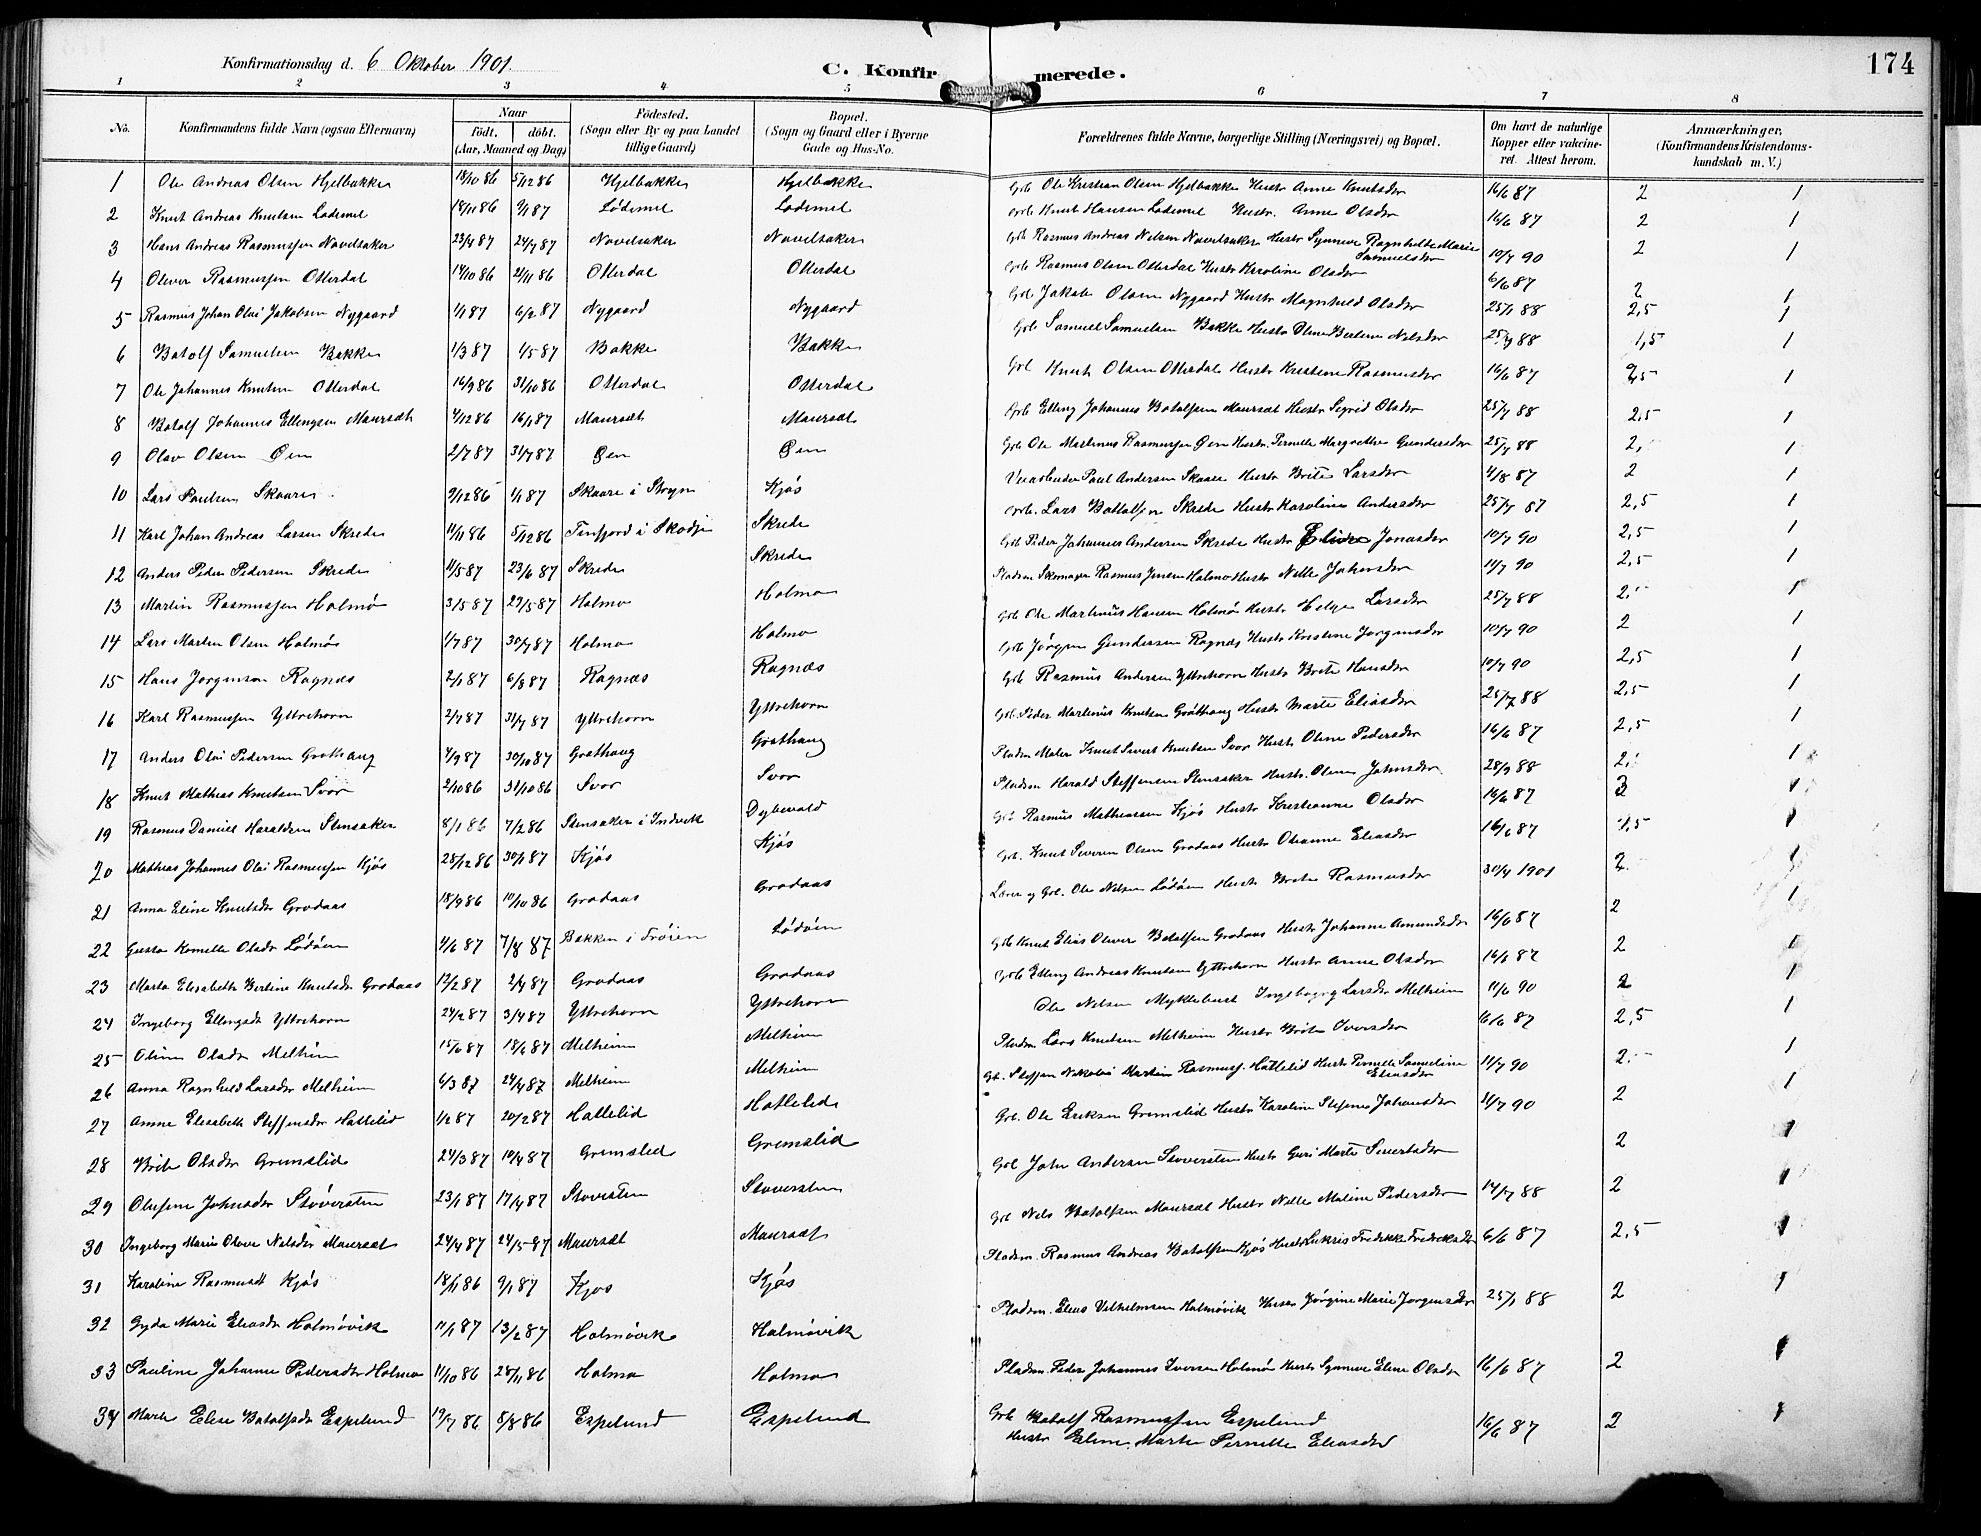 174
Konfirmationsdag d. 6 Oktober 1901.
C. Konfirmerede.
1 2 3 4 5 6 7 8
No. Konfirmandens fulde Navn (ogsaa Efternavn) Naar født. døbt. (Aar, Maaned og Dag) Fødested. (Sogn eller By og paa Landet tillige Gaard) Bopæl. (Sogn og Gaard eller i Byerne Gade og Hus-No. Forældrenes fulde Navne, borgerlige Stilling (Næringsvei) og Bopæl. Om havt de naturlige Kopper eller vakcineret. Attest herom. Anmærkninger, (Konfirmandens Kristendomskundskab m. V.)
1 Ole Andreas Olsen Hjelbakke 18/10 86 5/12 86 Hjelbakke Hjelbakke Grb Ole Kristian Olsen Hjelbakke Hustr Anne Knutsdr 16/6 87 2 1
2 Knut Andreas Knutsen Lødemel 18/11 86 9/1 87 Lødemel Lødemel Grb Knut Hansen Lødemel Hustr. Anne Olsdr 16/6 87 2 1
3 Hans Andreas Rasmussen Navelsaker 23/4 87 24/7 87 Navelsaker Navelsaker Grb Rasmus Andreas Nilsen Navelsaker Hustr Synneve Ragnhilde Marie Samuelsdr 10/7 90 2 1
4 Oliver Rasmussen Otterdal 14/10 86 21/11 86 Otterdal Otterdal Grb Rasmus Olsen Otterdal Hustr Karoline Olsdr 6/6 87 2 1
5 Rasmus Johan Olai Jakobsen Nygaard 1/1 87 6/2 87 Nygaard Nygaard Grb Jakob Olsen Nygaard Hustr Magnhild Olsdr 25/1 88 2,5 1
6 Batolf Samuelsen Bakke 1/3 87 1/5 87 Bakke Bakke Grb Samuel Samuelsen Bakke Hustr Oline Berline Nilsdr 25/7 88 1,5 1
7 Ole Johannes Knutsen Otterdal 16/9 86 31/10 86 Otterdal Otterdal Grb Knut Olsen Otterdal Hustr Kristine Rasmusdr 16/6 87 1
8 Batolf Johannes Ellingsen Maursæt 4/12 86 16/1 87 Maursæt Maursæt Grb Elling Johannes Batolfsen Maursæt Hustr Sigrid Olsdr 25/7 88 2,5 1
9 Olav Olsen Øen 2/7 87 31/7 87 Øen Øen Grb Ole Martinus Rasmussen Øen Hustr. Pernille Margrethe Gundersdr 25/7 88 2, 1
10 Lars Paulsen Skaare 9/12 86 1/1 87 Skaare i Stryn Kjøs Paul Andersen Skaare Hustr Brite Larsdr 4/8 87 2 1
11 Karl Johan Andreas Larsen Skrede 11/11 86 5/12 86 Tenfjord i Skodje Skrede Grb. Lars Battolfsen Skrede Hustr Karoline Andersdr 25/7 87 2,5 1
12 Anders Peder Pedersen Skrede 11/5 87 23/6 87 Skrede Skrede Grb Peder Johannes Andersen Skrede Hustr Jonasdr 10/7 90 2,5 1
13 Martin Rasmussen Holmø 3/5 87 29/5 87 Holmø Holmø Pladsm Skomager Rasmus Jensen Holmø Hustr Nille Johansdr 11/7 90 2,5 1
14 Lars Martin Olsen Holmøi 1/7 87 30/7 87 Holmø Holmø Grb Ole Martinus Hansen Holmøi Hustr Helga Larsdr 25/7 88 2 1
15 Hans Jørgensen Ragnæs 2/1 87 6/3 87 Ragnæs Ragnæs Grb Jørgen Gundersen Ragnæs Hustr Kristine Jørgensdr 10/7 90 2 1
16 Karl Rasmussen Yttrehorn 2/7 87 31/7 87 Yttrehorn Yttrehorn Grb Rasmus Andersen Yttrehorn Hustr Brite Hansdr 10/7 90 2,5 1
17 Anders Olai Pedersen Grøthaug 4/9 87 30/10 87 Grøthaug Grøthaug Grb. Peder Martinus Knutsen Grøthaug Hustr Marte Eliasdr 25/7 88 2,5 1
18 Knut Mathias Knutsen Svor 2/10 86 31/10 86 Svor Svor Pladsm Maler Knut Sivert Knutsen Svor Hustr Oline Pedersdr 16/6 87 2,5 1
19 Rasmus Daniel Haraldsen Stensaker 8/1 86 7/2 86 Stensaker i Indvik Dybevold Pladsm Harald Steffensen Stensaker Hustr. Oline Johnsdr. 28/9 88 2, 1
20 Mathias Johannes Olai Rasmussen Kjøs 25/12 86 30/1 87 Kjøs Kjøs Grb Rasmus Mathiassen Kjøs Hustr Kristianne Olsdr 16/6 87 3 1
21 Anna Eline Knutsdr Grodaas 18/9 86 10/10 86 Grodaas Grodaas Grb. Knut Severin Olsen Grodaas Hustr Olianne Eliasdr 16/6 87 1,5 1
22 Gusta Kornelle Olsdr Lødøen 4/6 87 7/8 87 Bakken i Frøien Lødøen Lærer og Grb. Ole Nilsen Lødøen Hustr Brite Rasmusdr 30/4 1901 2 1
23 Marta Elisabeth Berline Knutsdr Grodaas 12/2 87 2/4 87 Grodaas Grodaas Grb Knut Elias Oliver Batolfsen Grodaas Hustr Johanne Amundsdr 16/6 87 2 1
24 Ingeborg Ellingsdr Yttrehorn 24/2 87 3/4 87 Yttrehorn Yttrehorn Grb Elling Andreas Knutsen Yttrehorn Hustr Anne Olsdr 16/6 87 2 1
25 Oline Olsdr Melheim 15/6 87 18/6 87 Melheim Melheim Ole Nilsen Myklebust Ingeborg Larsdr Melheim 11/6 90 2 1
26 Anna Ragnhild Larsdr Melheim 6/3 87 24/4 87 Melheim Melheim Pladsm Lars Knutsen Melheim Hustr Brite Iversdr 6/6 87 2,5 1
27 Anne Elisabeth Steffensdr Hattelid 1/2 87 20/2 87 Hattelid Hattelid Gb. Steffen Nikolai Martin Rasmuss. Hattelid Hustr Pernille Samueline Eliasdr 11/7 90 2 1
28 Brite Olsdr Grimslid 24/3 87 10/4 87 Grimslid Grimslid Grb. Ole Eriksen Grimslid Hustr Karoline Stefine Johansdr 11/7 90 2 1
29 Olufine Johnsdr Støversten 23/1 87 17/4 87 Støversten Støversten Grb John Andersen Støversten Hustr Guri Marte Sivertsdr 2 1
30 Ingeborg Marie Oline Nilsdr Maursæt 24/4 87 24/5 87 Maursæt Maursæt Grb Nils Batolfsen Maursæt Hustr Nille Maline Pedersdr 14/7 88 2 1
31 Karoline Rasmusdr Kjøs 18/11 86 9/1 87 Kjøs Kjøs Pladsm. Rasmus Andreas Batolfsen Kjøs Hustr Lukris Fredrikke Fredriksdr 6/6 87 2,5 1
32 Gyda Marie Eliasdr Holmøvik 11/1 87 13/2 87 Holmøvik Holmøvik Pladsm. Elias Vilhelmsen Holmøvik Hustr Jørgine Marie Jørgensdr 25/1 88 2 1
33 Pauline Johanne Pedersdr Holmø 11/10 86 28/11 86 Holmø Holmø Pladsm. Peder Johannes Iversen Holmø Hustr Synneve Eline Olsdr 16/6 87 2 1
34 Marte Elise Batolfsdr Espelund 19/7 86 8/8 86 Espelund Espelund Grb Batolf Rasmussen Espelund
Hustr Eline Marte Pernille Eliasdr 16/6 87 2 1